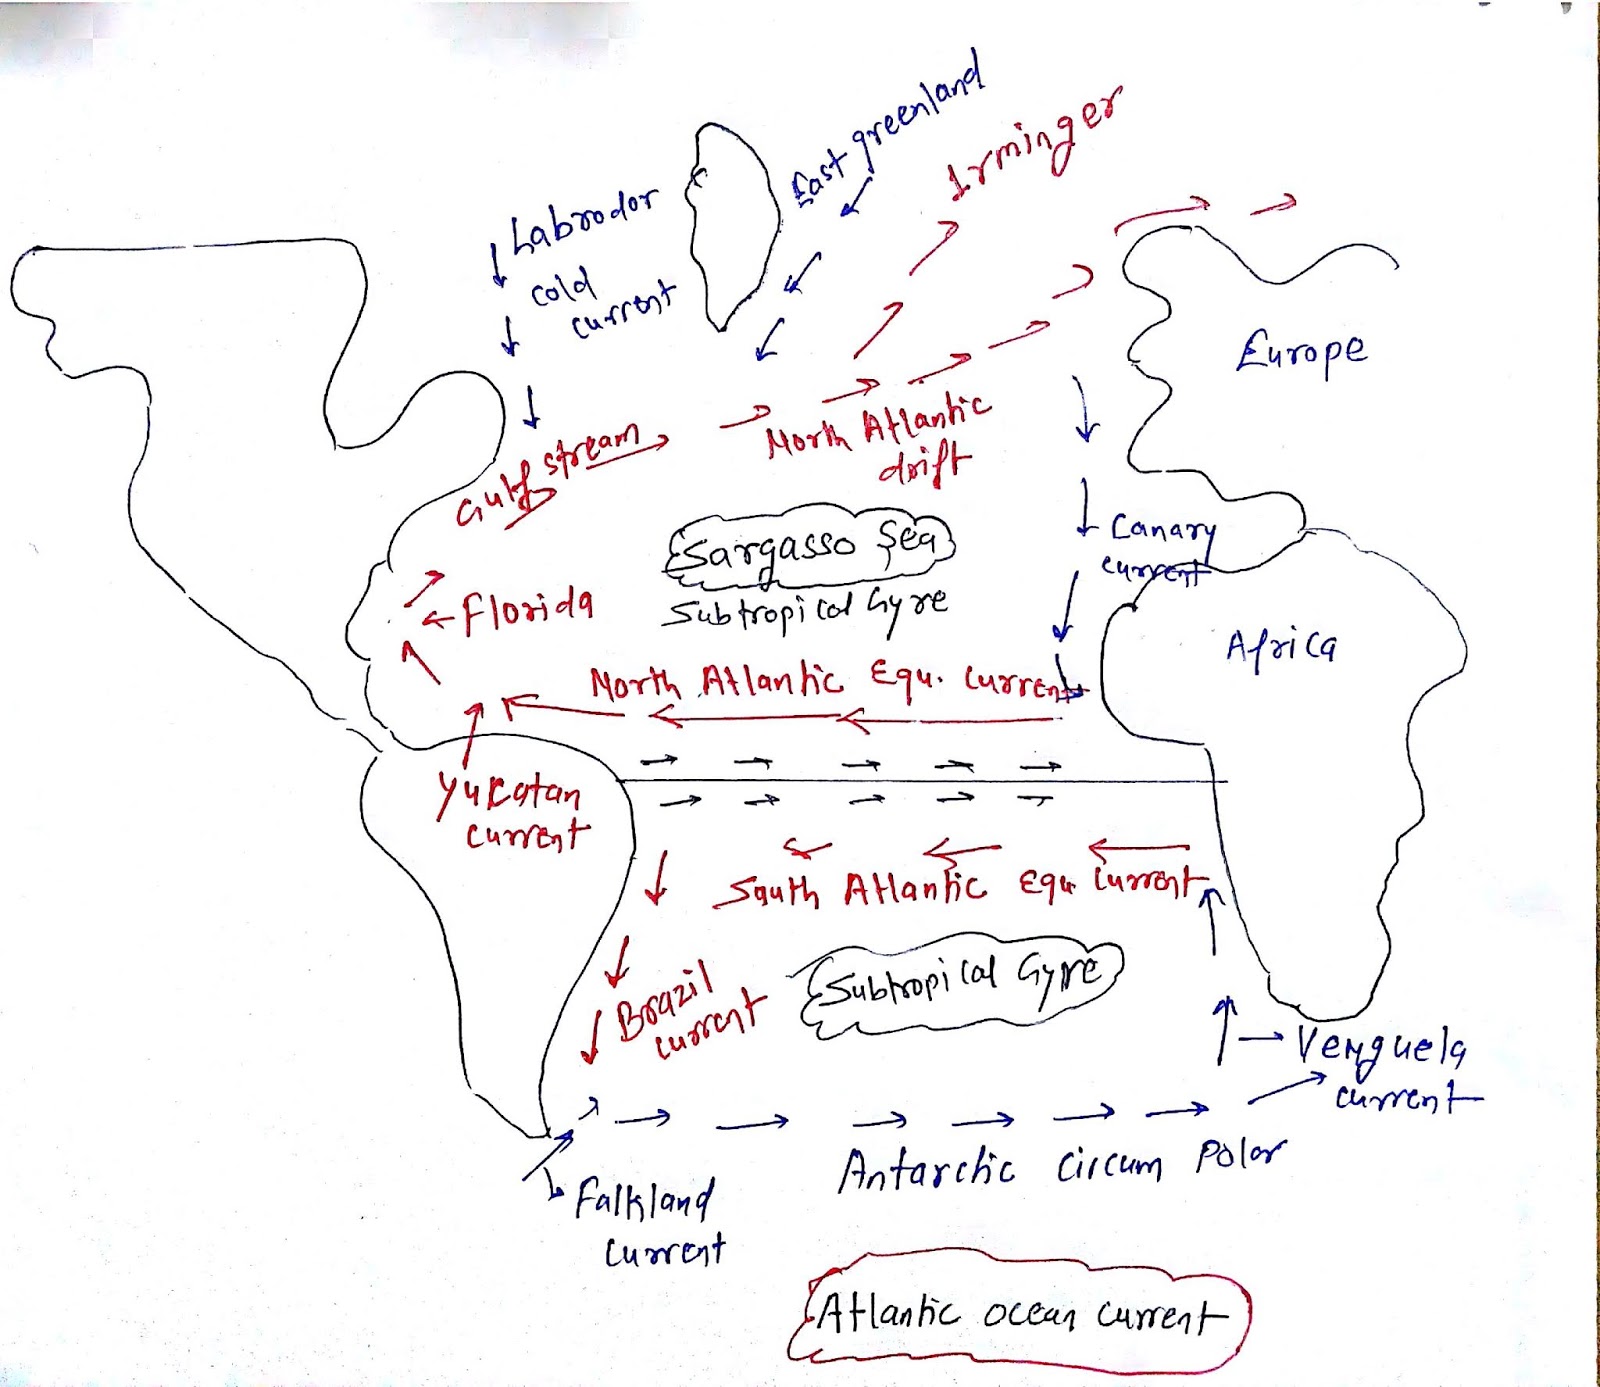 East greenland
Irminger
Labrodor
cold
current
Europe
Gulf stream
North Atlantic
drift
Canary
current
Sargasso Sea
Subtropical Gyre
Florida
Africa
North Atlantic Equ. Current
Yukatan
current
South Atlantic Equ. Current
Subtropical Gyre
Brazil
current
Venguela
current
Antarctic Circum Polar
Falkland
current
Atlantic ocean current